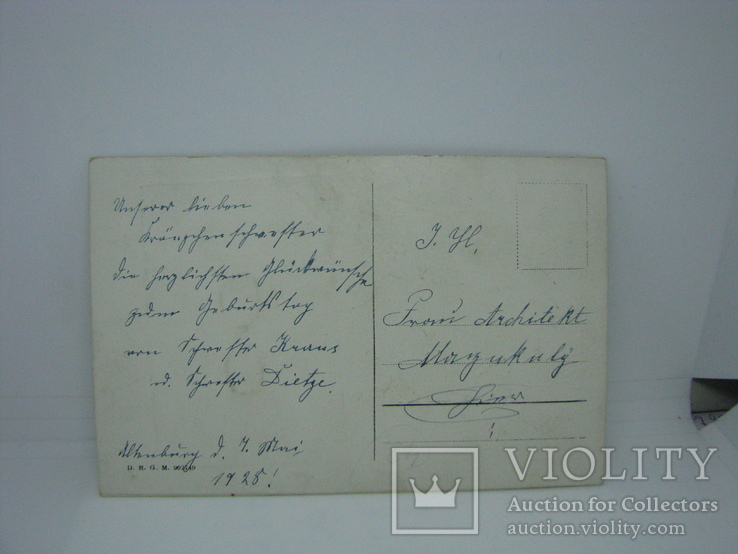 Unserer lieben
Kränzchenschwester
die herzlichsten Glückwünsche
zum Geburtstag
von Schwester Kraus
u. Schwester Dietze.
Altenburg d. 7. Mai
1928!
D. R. G. M.
Frau Architekt
Hier
!
VIOLITY
Auction for Collectors
auction.violity.com